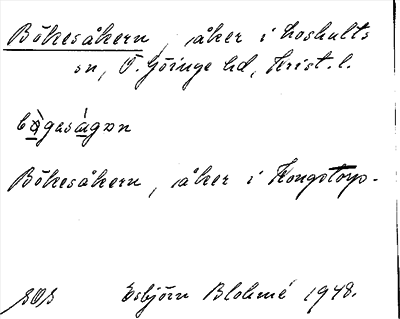 Bökesåkern, åker i Loshults
sn, Ö. Göinge hd, Krist. l.
Bökesåkern, åker i Kongstorp.
Esbjörn Blohmé 1948.